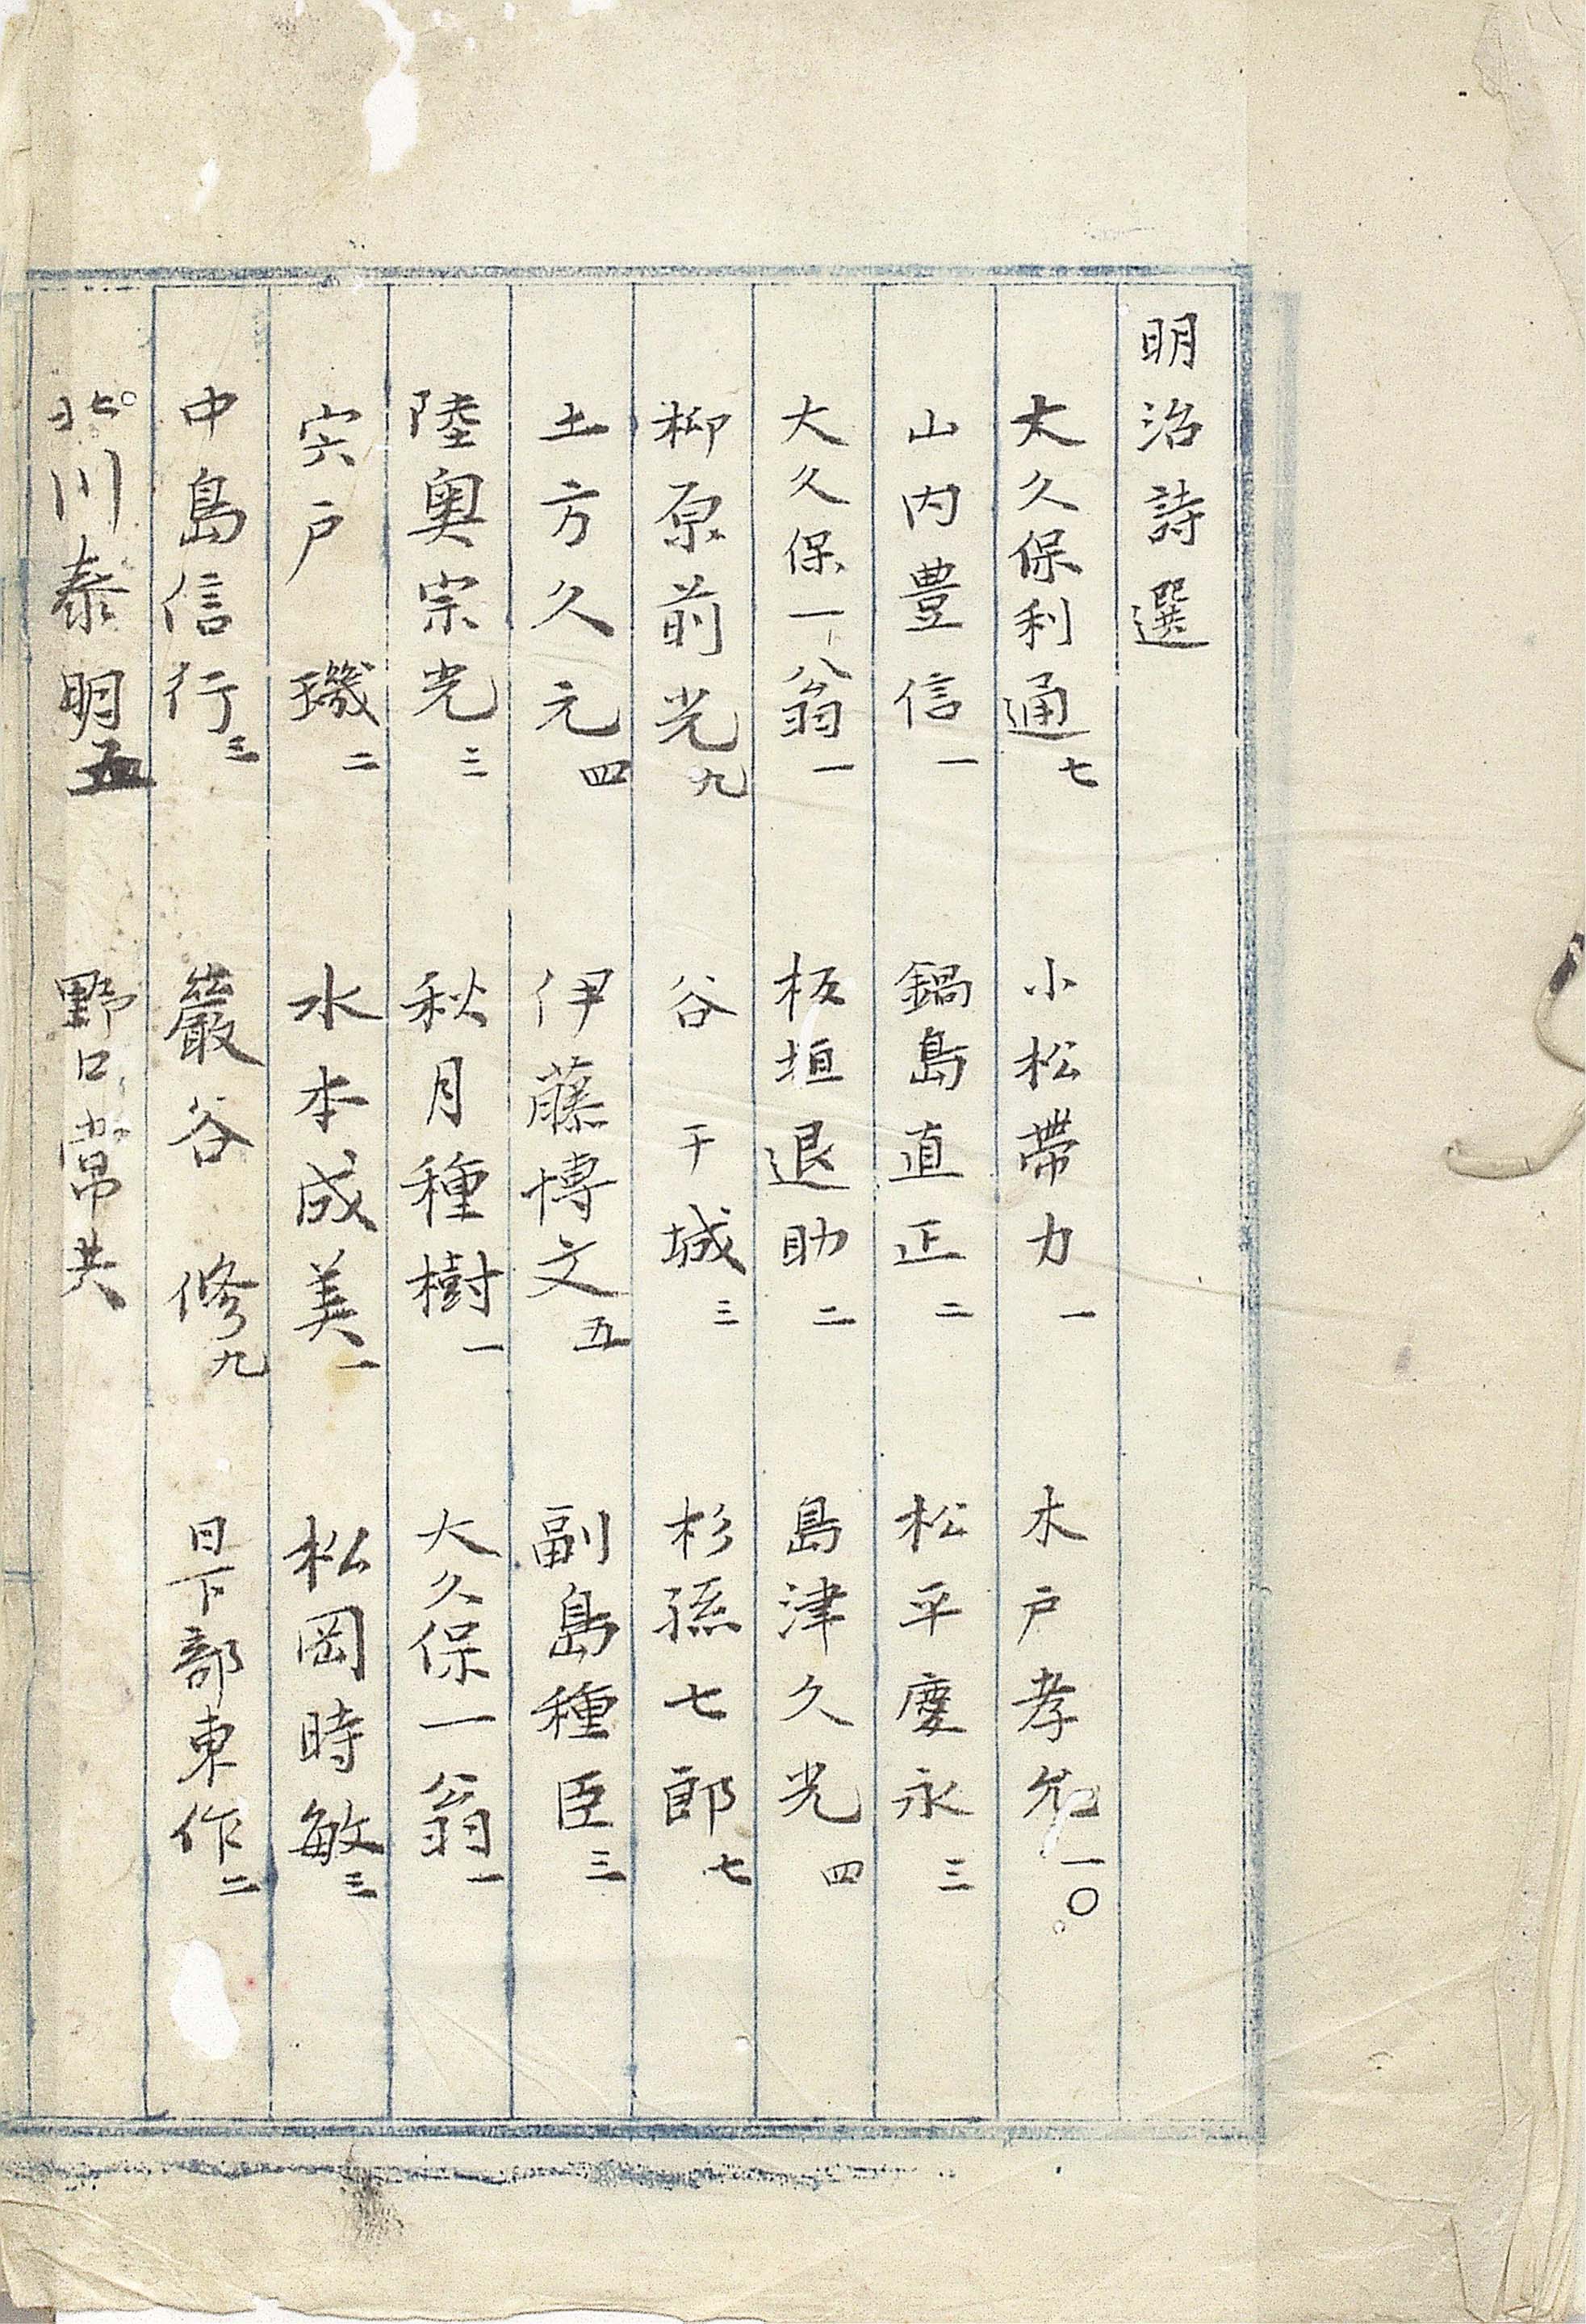 明治詩選
大久保利通七 小松帶力一 木戸孝允一〇
山内豊信一 鍋島直正二 松平慶永三
大久保一翁一 板垣退助二 島津久光四
柳原前光九 谷干城三 杉孫七郎七
土方久元四 伊藤博文五 副島種臣三
陸奥宗光三 秋月種樹一 大久保一翁一
宍戸璣二 水本成美一 松岡時敏三
中島信行三 巖谷修九 日下部東作二
北川泰明五 野口常共